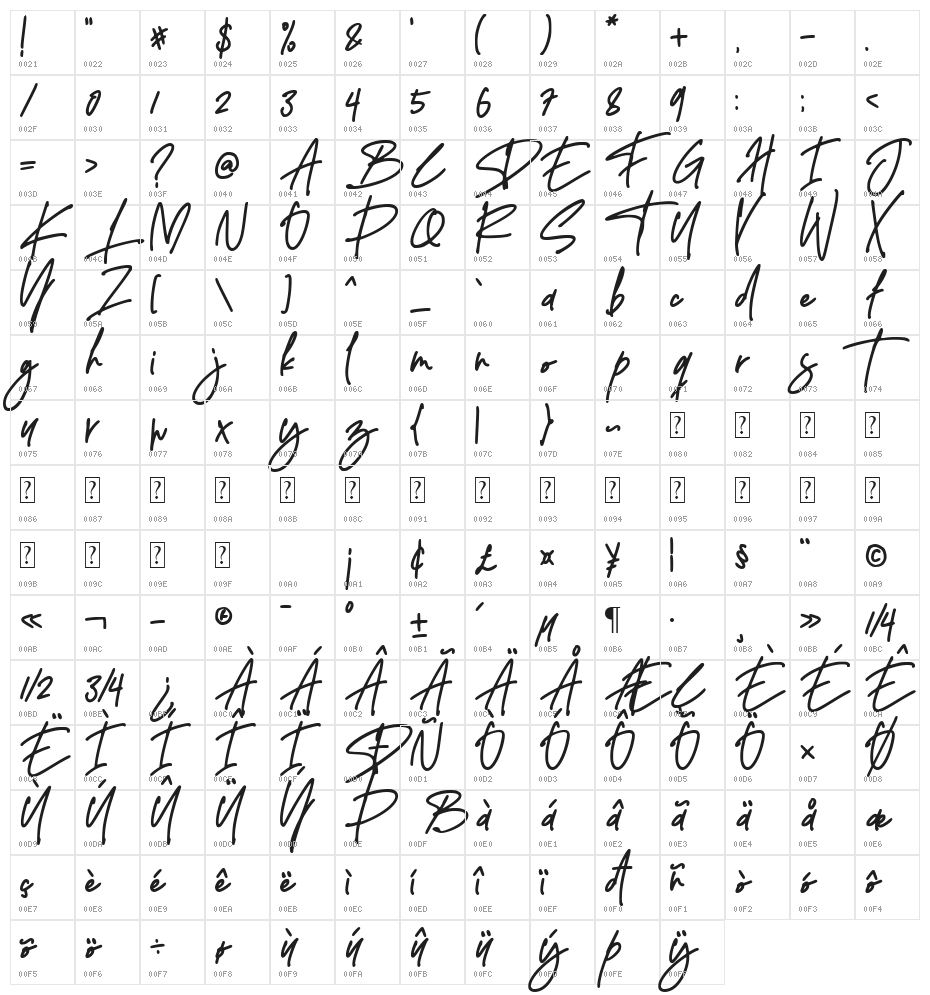 ! " # $ % & ' ( ) * + , - .
0021 0022 0023 0024 0025 0026 0027 0028 0029 002A 002B 002C 002D 002E
/ 0 1 2 3 4 5 6 7 8 9 : ; <
002F 0030 0031 0032 0033 0034 0035 0036 0037 0038 0039 003A 003B 003C
= > ? @ A B C D E F G H I J
003D 003E 003F 0040 0041 0042 0043 0044 0045 0046 0047 0048 0049 004A
K L M N O P Q R S T U V W X
004B 004C 004D 004E 004F 0050 0051 0052 0053 0054 0055 0056 0057 0058
Y Z [ \ ] ^ _ ` a b c d e f
0059 005A 005B 005C 005D 005E 005F 0060 0061 0062 0063 0064 0065 0066
g h i j k l m n o p q r s t
0067 0068 0069 006A 006B 006C 006D 006E 006F 0070 0071 0072 0073 0074
u v w x y z { | } ~ ? ? ? ?
0075 0076 0077 0078 0079 007A 007B 007C 007D 007E 0080 0082 0084 0085
? ? ? ? ? ? ? ? ? ? ? ? ? ?
0086 0087 0089 008A 008B 008C 0091 0092 0093 0094 0095 0096 0097 009A
? ? ? ? ¡ ¢ £ ¤ ¥ ¦ § ¨ ©
009B 009C 009E 009F 00A0 00A1 00A2 00A3 00A4 00A5 00A6 00A7 00A8 00A9
« ¬ - ® ¯ ° ± ´ µ ¶ · ¸ » 1/4
00AB 00AC 00AD 00AE 00AF 00B0 00B1 00B4 00B5 00B6 00B7 00B8 00BB 00BC
1/2 3/4 ¿ À Á Â Ã Ä Å Æ Ç È É Ê
00BD 00BE 00BF 00C0 00C1 00C2 00C3 00C4 00C5 00C6 00C7 00C8 00C9 00CA
Ë Ì Í Î Ï Ð Ñ Ò Ó Ô Õ Ö × Ø
00CB 00CC 00CD 00CE 00CF 00D0 00D1 00D2 00D3 00D4 00D5 00D6 00D7 00D8
Ù Ú Û Ü Ý Þ ß à á â ã ä å æ
00D9 00DA 00DB 00DC 00DD 00DE 00DF 00E0 00E1 00E2 00E3 00E4 00E5 00E6
ç è é ê ë ì í î ï ð ñ ò ó ô
00E7 00E8 00E9 00EA 00EB 00EC 00ED 00EE 00EF 00F0 00F1 00F2 00F3 00F4
õ ö ÷ ø ù ú û ü ý þ ÿ
00F5 00F6 00F7 00F8 00F9 00FA 00FB 00FC 00FD 00FE 00FF